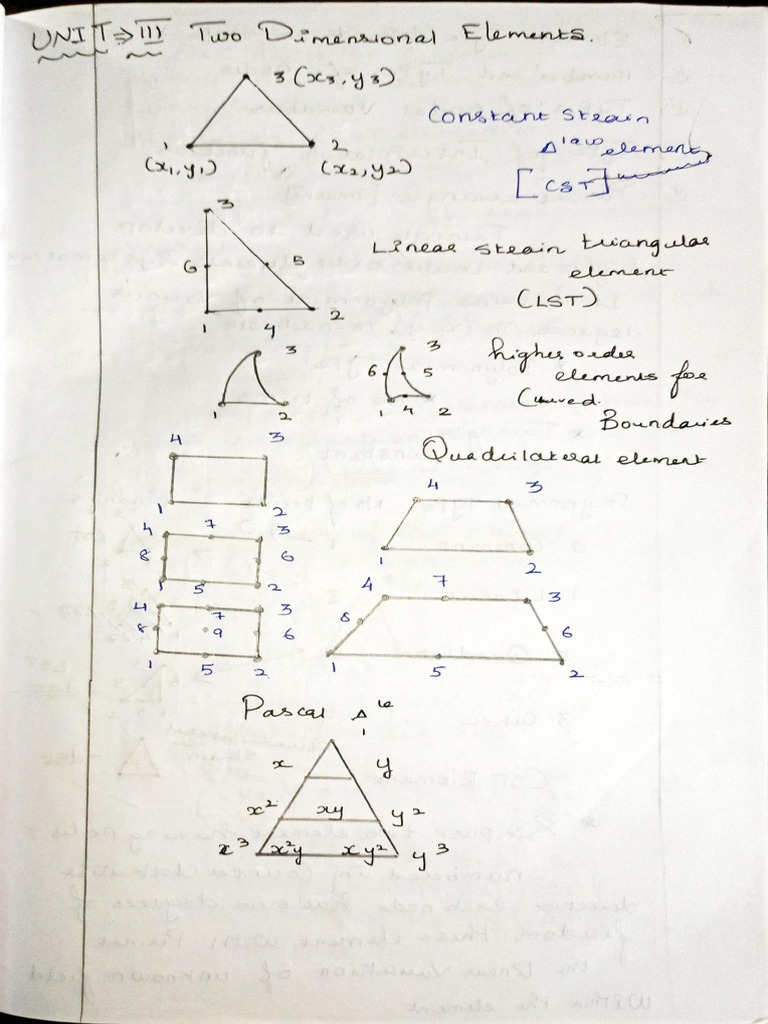 UNIT ⇒ III Two Dimensional Elements.
3 (x₃, y₃)
1 2
(x₁, y₁) (x₂, y₂)
Constant Strain
Δˡᵃʳ element
[CST]
3
6 5
1 4 2
Linear Strain triangular
element
(LST)
3
1 2
3
6 5
1 4 2
higher order
elements for
Curved
Boundaries
Quadrilateral element
4 3
1 2
4 3
1 2
4 7 3
8 6
1 5 2
4 7 3
8 6
1 5 2
4 7 3
8 9 6
1 5 2
Pascal Δˡᵉ
1
x y
x² xy y²
x³ x²y xy² y³